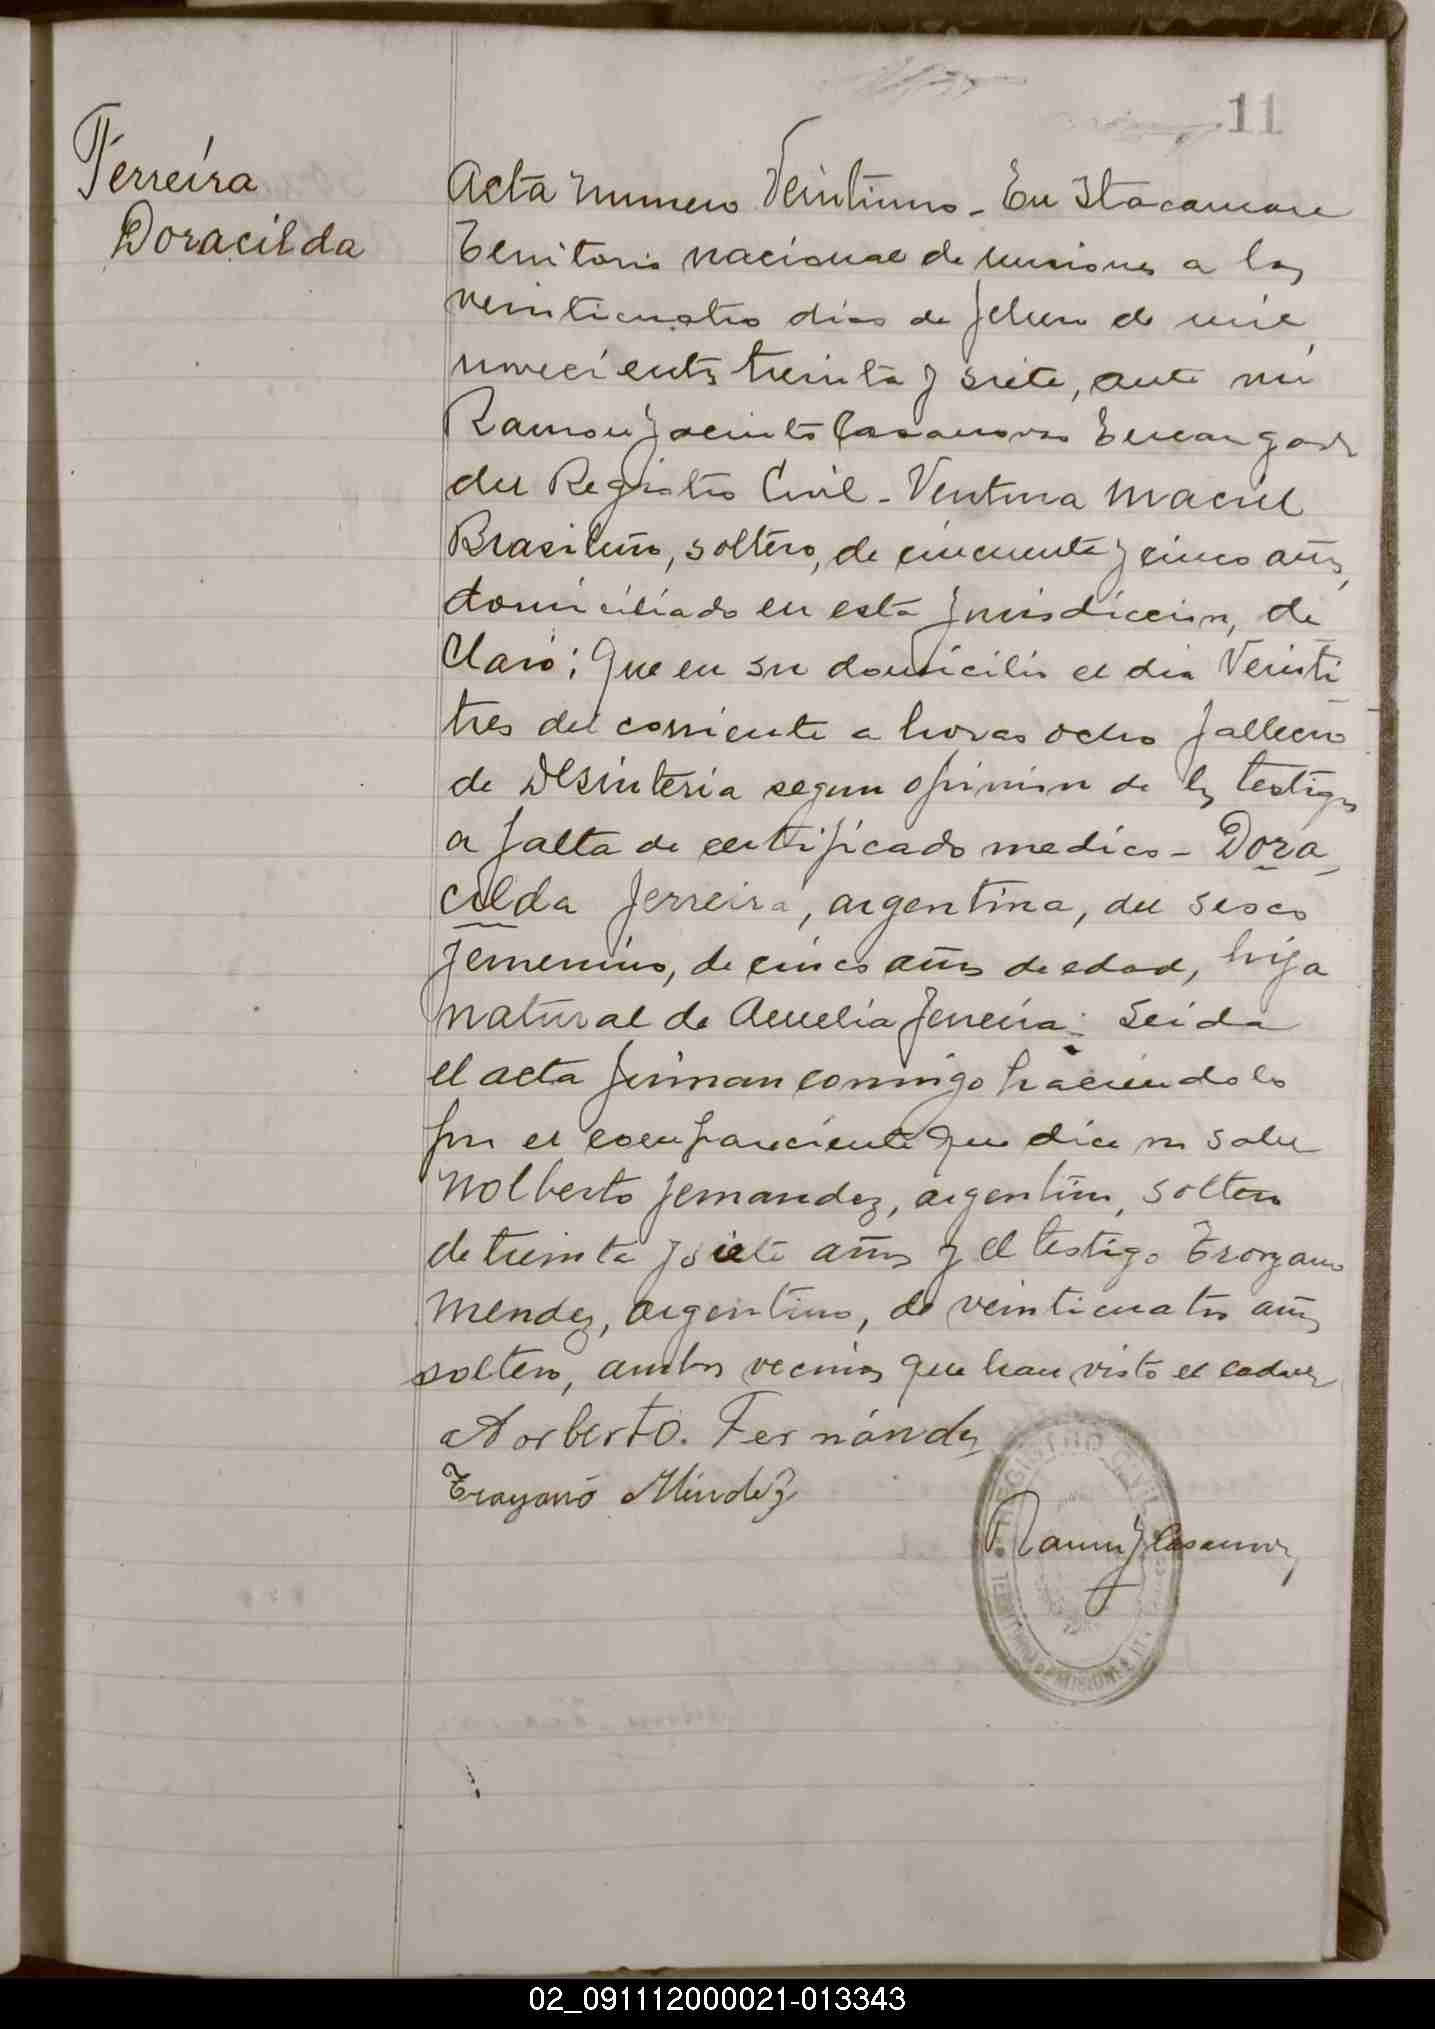 11
Ferreira
Doracilda
Acta numero Veintiuno - En Itacaruare
Territorio nacional de misiones a los
veinticuatro dias de febrero de mil
novecientos treinta y siete, ante mi
Ramon Jacinto Casanovas Encargado
del Registro Civil - Ventura Maciel
Brasileño, soltero, de cincuenta y cinco años,
domiciliado en esta jurisdiccion, de
claró; Que en su domicilio el dia Veinti
tres del corriente a horas ocho fallecio
de Desinteria segun opinion de los testigos
a falta de certificado medico - Dora
cilda Ferreira, argentina, del sexo
femenino, de cinco años de edad, hija
natural de Aurelia Ferreira. Leida
el acta firman conmigo haciendolo
por el compareciente que dice no saber
Nolberto Fernandez, argentino, soltero
de treinta y siete años y el testigo Troyano
Mendez, argentino, de veinticuatro años
soltero, ambos vecinos que han visto el cadaver
Norberto. Fernández
Trayano Méndez
Ramon J Casanovas
REGISTRO CIVIL
TERRITORIO DE MISIONES
02_091112000021-013343